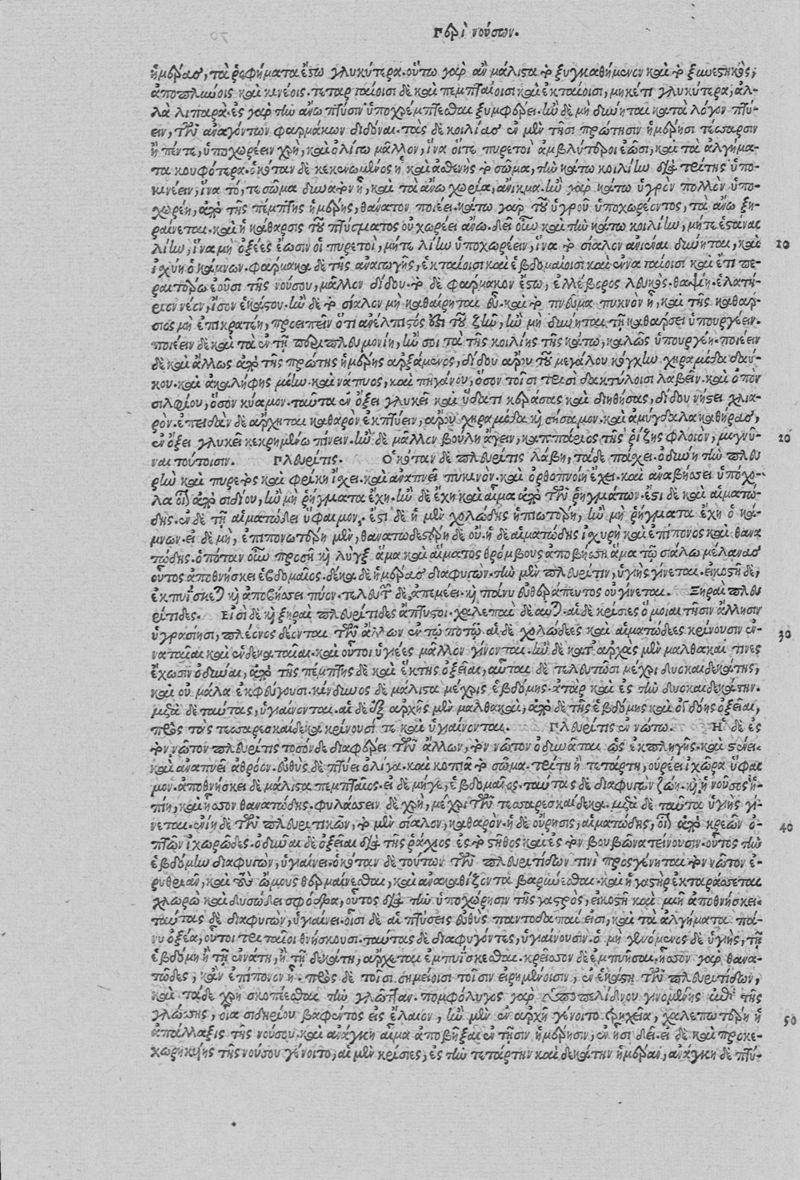 Περὶ νούσων.
ἡμέρας, τὰ ῥοφήματα ἔστω γλυκύτερα. οὕτω γὰρ ἂν μάλιστα τὸ ξυγκαθήμενον καὶ τὸ ξυνεστηκὸς,
πεμπταίοισι καὶ ἑκταίοισι, μηκέτι γλυκύτερα, ἀλ-
λὰ λιπαρά. ἐς γὰρ τὴν ἄνω πτύσιν ὑποχρέμπτεσθαι ξυμφέρει. ἢν δὲ μὴ δύνηται κατὰ λόγον πτύ-
ειν, τῶν ἀναγόντων φαρμάκων διδόναι. τὰς δὲ κοιλίας ἐν μὲν τῇσι πρώτῃσιν ἡμέρῃσι τέσσαρσιν
ἢ πέντε, ὑποχωρέειν χρὴ, καὶ ὀλίγῳ μᾶλλον, ἵνα οἵτε πυρετοὶ ἀμβλύτεροι ἔωσι, καὶ τὰ ἀλγήμα-
τα κουφότερα. ὁκόταν δὲ κεκενωμένος ᾖ, καὶ ἀσθενὴς τὸ σῶμα, τὴν κάτω κοιλίην διὰ τρίτης ὑπο-
κινέειν, ἵνα τό, τε σῶμα δυνατὸν ᾖ, καὶ τὰ ἄνω χωρία, ἔνικμα. ἢν γὰρ κάτω ὑγρὸν πολλὸν ὑπο-
χωρέῃ, ἀπὸ τῆς πέμπτης ἡμέρης, θάνατον ποιέει. κάτω γὰρ τοῦ ὑγροῦ ὑποχωρέοντος, τὰ ἄνω ξη-
ραίνεται. καὶ ἡ κάθαρσις τοῦ πτύσματος οὐ χωρέει ἄνω. δεῖ οὖν καὶ τὴν κάτω κοιλίην, μήτε ἑστάναι
λίην, ἵνα μὴ ὀξέες ἔωσιν οἱ πυρετοὶ, μήτε λίην ὑποχωρέειν, ἵνα τὸ σίαλον ἀνιέναι δύνηται, καὶ 10
ἰσχύῃ ὁ κάμνων. φάρμακα δὲ τῆς ἀναγωγῆς, ἑκταίοισι καὶ ἑβδομαίοισι καὶ ἐνναταίοισι καὶ ἔτι πε-
ραιτέρω ἐοῦσι τῆς νούσου, μᾶλλον δίδου. τὸ δὲ φάρμακον ἔστω, ἐλλέβορος λευκὸς. θαψίη. ἐλατή-
ριον νέον, ἴσον ἑκάστου. ἢν δὲ τὸ σίαλον μὴ καθαίρηται εὖ. καὶ τὸ πνεῦμα πυκνὸν ᾖ, καὶ τῆς καθάρ-
σιος μὴ ἐπικρατέῃ, προειπεῖν ὅτι ἀνέλπιστός ἐστι τοῦ ζῆν, ἢν μὴ δύνηται τῇ καθάρσει ὑπουργέειν.
ποιέειν δὲ καὶ τὰ ἐν τῇ περιπλευμονίῃ, ἤν σοι τὰ τῆς κοιλίης τῆς κάτω, καλῶς ὑπουργῇ. ποιέειν
δὲ καὶ ἄλλως ἀπὸ τῆς πρώτης ἡμέρης ἀρξάμενος, δίδου
κου. καὶ ἀκαλήφης καὶ νάπυος, καὶ πηγάνου, ὅσον τοῖσι τρισὶ δακτύλοισι λαβεῖν. καὶ ὀπὸν
σιλφίου, ὅσον κύαμον. ταῦτα ἐν ὄξει γλυκεῖ καὶ ὕδατι κεράσας καὶ διηθήσας, δίδου νήστει χλια-
ρόν. ἐπειδὰν δὲ ἄρχηται καθαρὸν ἐκπτύειν, καὶ σήσαμον. καὶ ἀμύγδαλα καθήρας,
ἐν ὄξει γλυκεῖ κεκρημένῳ πίνειν. ἢν δὲ μᾶλλον βούλῃ ἄγειν, καππάριος τῆς ῥίζης φλοιὸν, μιγνύ- 20
ναι τούτοισιν. Πλευρῖτις. Ὁκόταν δὲ πλευρῖτις λάβῃ, τάδε πάσχει. ὀδύνη τὴν πλευ-
ρὴν καὶ πυρετὸς καὶ φρίκη ἴσχει. καὶ ἀναπνεῖ πυκινὸν. καὶ ὀρθοπνοίη ἔχει. καὶ ἀναβήσσει ὑπόχο-
λα οἷα ἀπὸ σιδίου, ἢν μὴ ῥήγματα ἔχῃ. ἢν δὲ ἔχῃ καὶ αἷμα ἀπὸ τῶν ῥηγμάτων. ἔστι δὲ καὶ αἱματώ-
δης. ἐν δὲ τῇ αἱματώδει ὕφαιμον. ἔστι δὲ ἡ μὲν χολώδης ἠπιωτέρη, ἢν μὴ ῥήγματα ἔχῃ ὁ κά-
μνων. εἰ δὲ μὴ, ἐπιπονωτέρη μὲν, θανατωδεστέρη δὲ οὔ. ἡ δὲ αἱματώδης ἰσχυρὴ καὶ ἐπίπονος καὶ θανα
τώδης. ὁπόταν οὖν προσῇ καὶ λύγξ. ἅμα καὶ αἵματος θρόμβους ἀποβήσσῃ ἅμα τῷ σιάλῳ μέλανας
οὗτος ἀποθνήσκει ἑβδομαῖος. δέκα δὲ ἡμέρας διαφυγὼν. τὴν μὲν πλευρῖτιν, ὑγιὴς γίνεται. εἰκοστῇ δὲ,
ἐκπυΐσκεται καὶ ἀποβήσσει πύον. τελευτᾷ δὲ, ἀπεμέει. καὶ πάνυ εὐθεράπευτος οὐ γίνεται. Ξηραὶ πλευ
ρίτιδες. Εἰσὶ δὲ καὶ ξηραὶ πλευρίτιδες ἄπτυστοι. χαλεπαὶ δὲ αὗται. αἱ δὲ κρίσιες ὅμοιαι τῇσιν ἄλλῃσιν
ὑγρασίῃσι, πλέονος δέονται τῶν ἄλλων ἐν τῷ ποτῷ. αἱ δὲ χολώδεες καὶ αἱματώδεες κρίνουσιν ἐν- 30
ναταῖαι καὶ ἑνδεκαταῖαι. καὶ οὗτοι ὑγιέες μᾶλλον γίνονται. ἢν δὲ κατ᾽ ἀρχὰς μὲν μαλθακαί τινες
ἔχωσιν ὀδύναι, ἀπὸ τῆς πέμπτης δὲ καὶ ἕκτης ὀξεῖαι, αὗται δὲ τελευτῶσι μέχρι δυοκαιδεκάτης,
καὶ οὐ μάλα ἐκφεύγουσι. κίνδυνος δὲ μάλιστα μέχρις ἑβδόμης. ἀτὰρ καὶ ἐς τὴν δυοκαιδεκάτην.
μετὰ δὲ ταύτας, ὑγιαίνονται. αἱ δὲ ἐξ ἀρχῆς μὲν μαλθακαὶ, ἀπὸ δὲ τῆς ἑβδόμης καὶ ὀγδόης ὀξεῖαι,
πρὸς τὰς τεσσαρεσκαίδεκα κρίνουσί τε καὶ ὑγιαίνονται. Πλευρῖτις ἐν νώτῳ. Ἡ δὲ ἐς
τὸν νῶτον πλευρῖτις τοσόνδε διαφέρει τῶν ἄλλων, τὸν νῶτον ὀδυνᾶται ὡς ἐκ πληγῆς. καὶ στένει.
καὶ ἀναπνεῖ ἀθρόον. εὐθὺς δὲ πτύει ὀλίγα. καὶ κοπιᾷ τὸ σῶμα. τρίτῃ ἢ τετάρτῃ, οὐρέει ἰχῶρα ὕφαι
μον. ἀποθνήσκει δὲ μάλιστα πεμπταῖος. εἰ δὲ μή γε, ἑβδομαῖος. ταύτας δὲ διαφυγὼν ζώῃ. καὶ ἡ νοῦσος ἠ-
πίη, καὶ ἧσσον θανατώδης. φυλάσσειν δὲ χρὴ, μέχρι τῶν τεσσαρεσκαίδεκα. μετὰ δὲ ταῦτα ὑγιὴς γί-
νεται. ἐνίῃ δὲ τῶν πλευριτικῶν, τὸ μὲν σίαλον, καθαρὸν. ἡ δὲ οὔρησις, αἱματώδης, οἷα ἀπὸ κρεῶν ὀ- 40
πτῶν ἰχωρῶδες. ὀδύναι δὲ ὀξεῖαι διὰ τῆς ῥάχιος ἐς τὸ στῆθος καὶ ἐς τὸν βουβῶνα τείνουσιν. οὗτος τὴν
ἑβδόμην διαφυγὼν, ὑγιαίνει. ὁκόταν δὲ τούτων τῶν πλευριτίδων τινὶ προσγένηται τὸν νῶτον ἐ-
ρυθριᾶν, καὶ τοὺς ὤμους θερμαίνεσθαι, καὶ ἀνακαθίζοντα βαρύνεσθαι. καὶ ἡ γαστὴρ ἐκταράσσεται
χλωρῷ καὶ δυσώδει σφόδρα, οὗτος διὰ τὴν ὑποχώρησιν τῆς γαστρὸς, εἰκοστῇ καὶ μιῇ ἀποθνήσκει.
ταύτας δὲ διαφυγὼν, ὑγιαίνει. οἷσι δὲ αἱ πτύσιες εὐθὺς παντοδαπαί εἰσι, καὶ τὰ ἀλγήματα πά-
νυ ὀξέα, οὗτοι τριταῖοι θνήσκουσι. ταύτας δὲ διαφυγόντες, ὑγιαίνουσιν. ὁ μὴ γενόμενος δὲ ὑγιὴς, τῇ
ἑβδόμῃ ἢ τῇ ἐννάτῃ, ἢ τῇ δεκάτῃ, ἄρχεται ἐμπυΐσκεσθαι. κρεῖσσον δὲ ἐμπυῆσαι. ἧσσον γὰρ θανα-
τῶδες, κἂν ἐπίπονον ᾖ. πρὸς δὲ τοῖσι σημείοισι τοῖσιν εἰρημένοισιν, ἐν ἑκάστῃ τῶν πλευριτίδων,
καὶ τάδε χρὴ σκοπέεσθαι τὴν γλῶτταν. πομφόλυγος γὰρ ὑποπελίδνου γινομένης ἐπὶ τῆς
γλώσσης, οἷα σιδηρίου βαφέντος εἰς ἔλαιον, ἢν μὲν ἐν ἀρχῇ γένοιτο τρηχεῖα, χαλεπωτέρη ἡ 50
ἀπάλλαξις τῆς νούσου. καὶ ἀνάγκη αἷμα ἀποβῆξαι ἐν τῇσιν ἡμέρῃσιν, ἐν ᾗσι δέει. εἰ δὲ καὶ προκε-
χωρηκυίης τῆς νούσου γένοιτο, αἱ μὲν κρίσιες, ἐς τὴν τετάρτην καὶ δεκάτην ἡμέραν, ἀνάγκη δὲ πτύ-